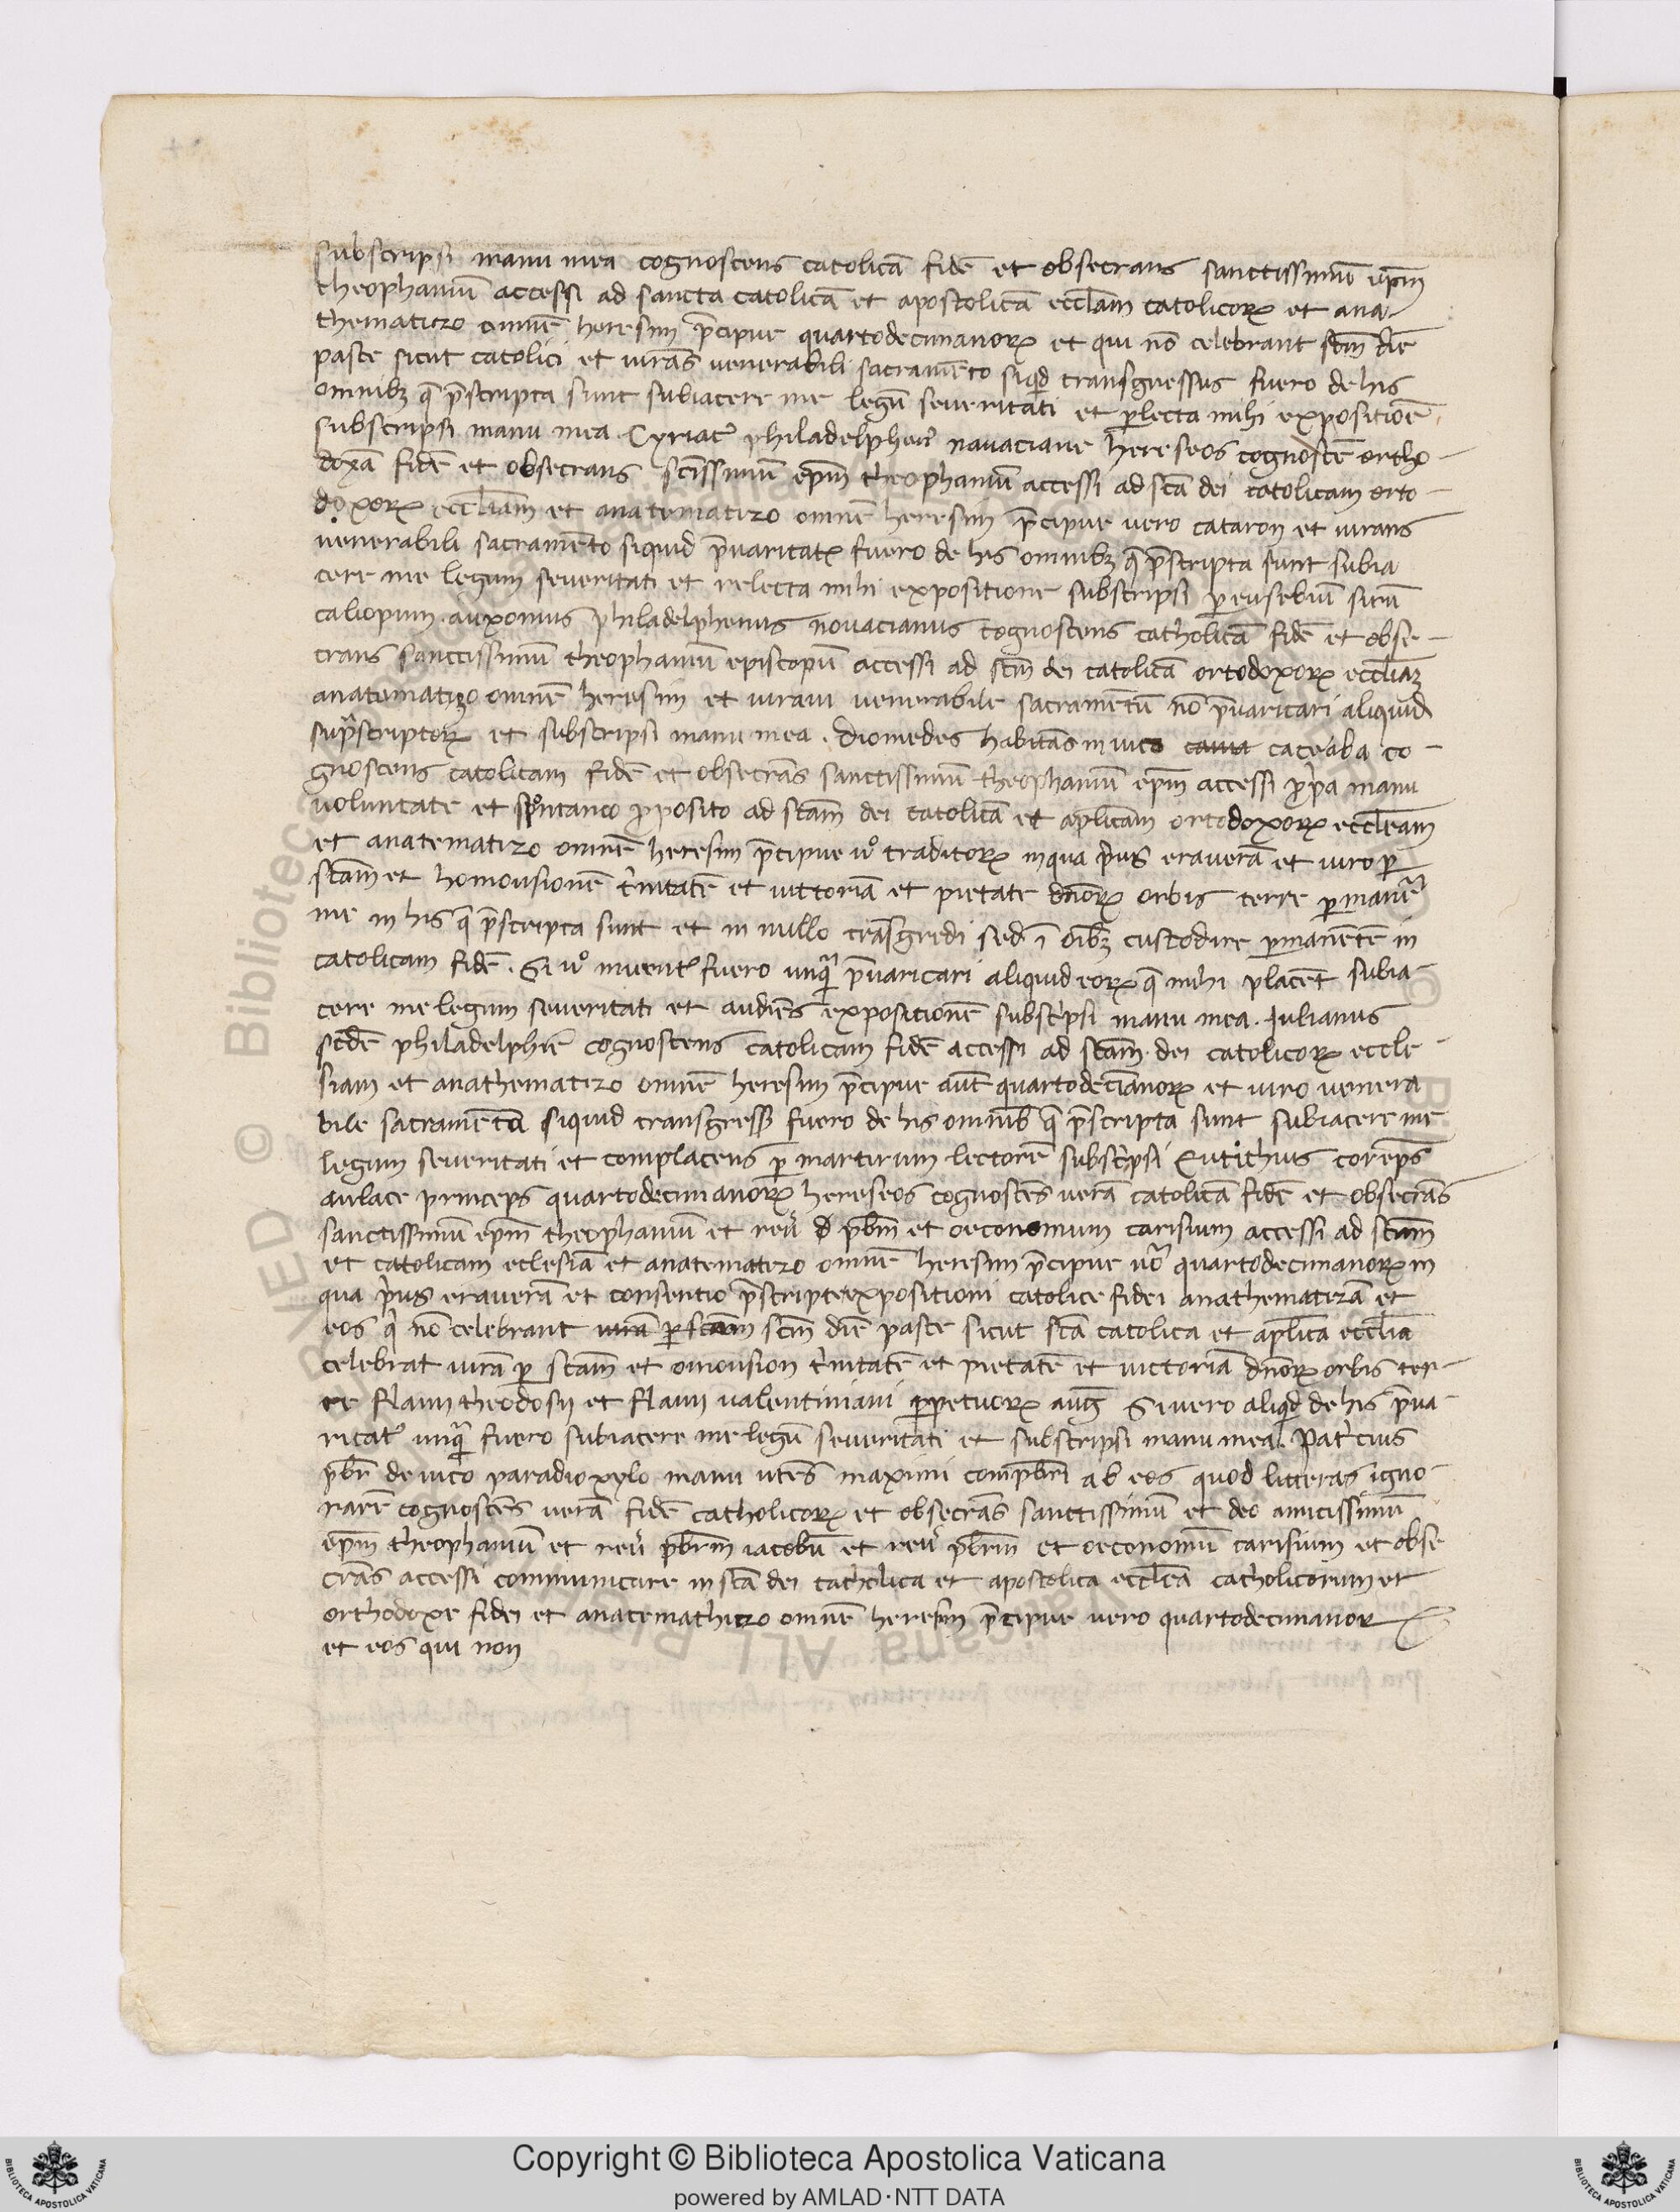 subscripsi manu mea cognoscens catolicā fidē et obsecrans sanctissimū ep̄m
theophaniū accessi ad sancta catolicā et apostolicā eccl̄iam catolicoꝝ et ana-
thematizo omnē heresim p̄cipue quartodecimanoꝝ et qui nō celebrant sc̄m diē
pasce sicut catolici et iurās venerabili sacramēto siq̇d transgressus fuero de his
omnibꝫ q̄ p̄scripta sunt subiacere me legū severitati et p̱lecta mihi expositiōe
subscripsi manu mea. Cyriacꝰ philadelphenꝰ navaciane hereseos cognoscē ortho-
doxā fidē et obsecrans sc̄issimū ep̄m theophaniū accessi ad sc̄ā dei catolicam orto-
doxoꝝ eccl̄iam et anatematizo omnē heresim p̄cipue vero cataron et iurans
venerabili sacramēto siquid p̄varicatꝰ fuero de his omnibꝫ q̄ p̄scripta sunt subia
cere me legum severitati et relecta mihi expositione subscripsi p̱ eusebiū sirū
caliopum. auxonius philadelphenus novacianus cognoscens catholicā fidē et obse-
crans sanctissimū theophaniū episcopū accessi ad sc̄m dei catolicā ortodoxoꝝ eccl̄iaꝫ
anatematizo omnē heresim et iuravi venerabile sacramentū nō p̄varicari aliquid
sup̄scriptoꝝ et subscripsi manu mea. Diomedes habitās in vico caceaba co-
gnoscens catolicam fidē et obsecrās sanctissimū theophaniū ep̄m accessi p̱pa manu
voluntate et spōntaneo p̱posito ad sc̄am dei catolicā et ap̄licam ortodoxoꝝ eccl̄eam
et anatematizo omnē heresim p̄cipue v̊ traditoꝝ in qua p̓us eraverā et iuro p̱
sc̄am et homousionē t̓nitatē et victoriā et pietate dn̄oꝝ orbis terre p̱manē
me in his q̄ p̄scripta sunt et in nullo trāsgredi sed ī oībꝫ custodire p̱manētē in
catolicam fidē. Si v̊ inventꝰ fuero unq̄ p̄varicari aliquid eoꝝ q̄ mihi placēt subia-
cere me legum severitati et audiēs expositionē subsc̓psi manu mea. Julianus
sedē philadelphiē cognoscens catolicam fidē accessi ad sc̄am dei catolicoꝝ eccle-
siam et anathematizo omnē heresim p̄cipue aut̄ quartodecīanoꝝ et iuro venera
bile sacramēto siquid transgressꝰ fuero de his omnib q̄ p̄scripta sunt subiacere me
legum severitati et complacens p̱ martirium lectorē subsc̓psi Eutichus corep̄s
aulace princeps quartodecimanoꝝ hereseos cognoscēs verā catolicā fidē et obsecrās
sanctissimū ep̄m theophaniū et rev̄ d pb̄m et oeconomum carisium accessi ad sc̄am
et catolicam eclesiā et anatematezo omnē heresim p̄cipue vō quartodecimanoꝝ in
qua p̓us eraverā et consentio p̄scripte expositioni catolice fidei anathematizā et
eos q̓ nō celebrant iurā p̱ sc̄am sc̄m diē pasce sicut sc̄a catolica et ap̄lica eccl̄ia
celebrat iurā p̱ sc̄am et omousion t̓nitatē et pietatē et victoriā dn̄oꝝ orbis ter-
re flavii theodosii et flavii valentiniani p̱petuoꝝ auḡ Si vero aliq̇d de his p̄va-
ricatꝰ unq̄ fuero subiacere me legū severitati et subscripsi manu mea. Pat̓cius
p̄br̄ de vico paradioxylo manu utēs maximi comp̄br̄i ab eos quod litteras igno-
rarē cognoscēs verā fidē catholicoꝝ et obsecrās sanctissimū et deo amicissimū
ep̄m theophaniū et rev̄ p̄brm̄ iacobū et rev̄ p̄brm̄ et oeconomū carisium et obse
crās accessi communicare in sc̄a dei catholica et apostolica eccl̄eā catholicorum et
orthodoxe fidei et anatemathizo omnē heresim p̄cipue vero quartodecimanoꝝ
et eos qui non
Copyright © Biblioteca Apostolica Vaticana
powered by AMLAD·NTT DATA